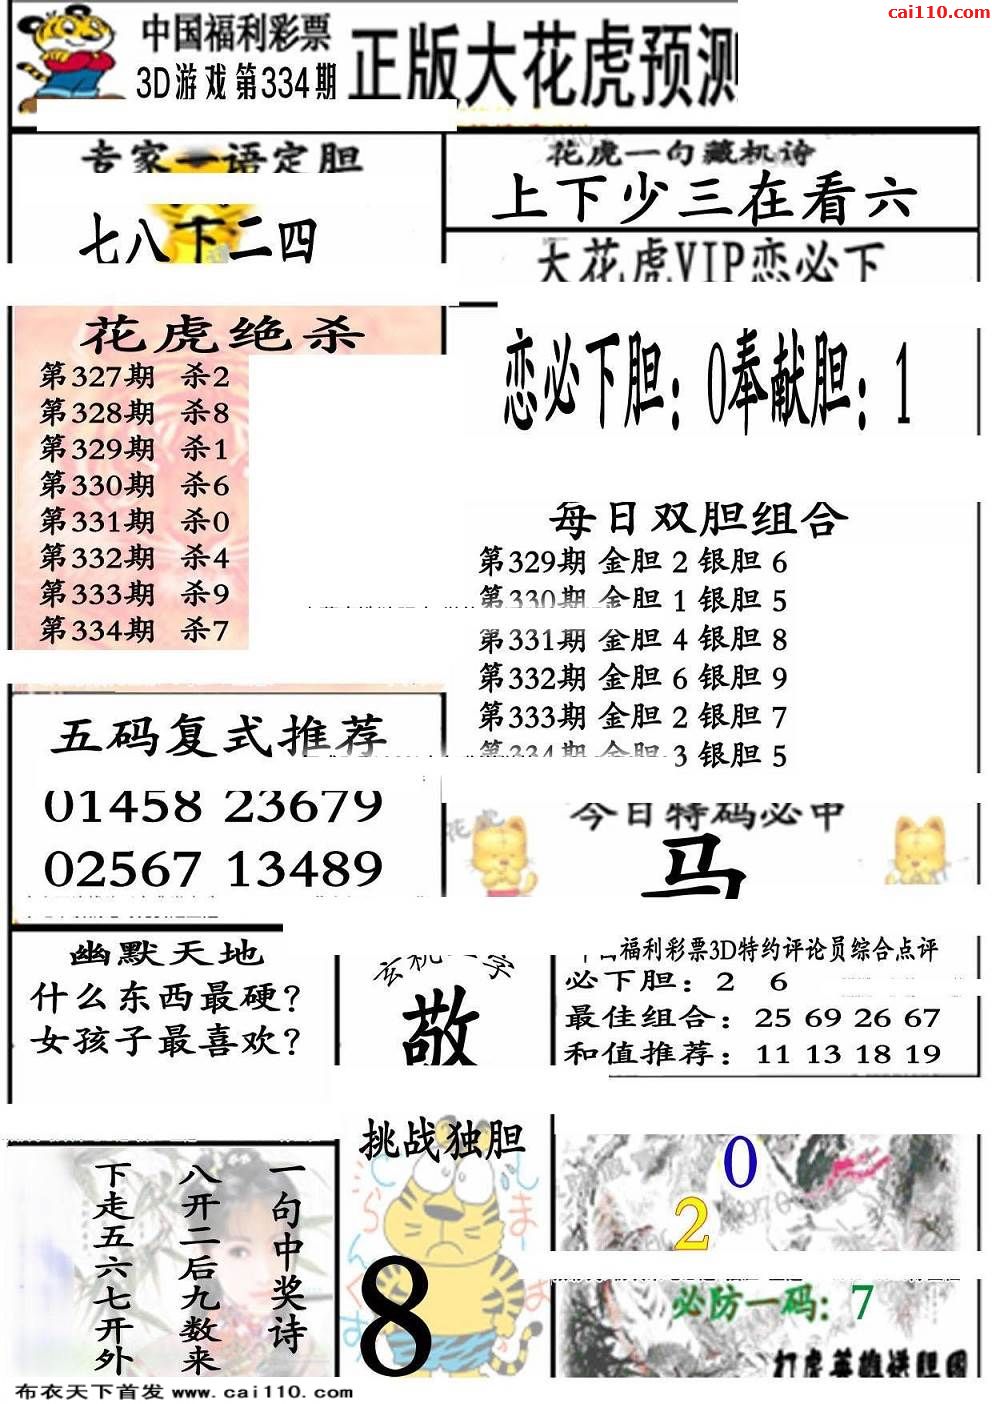 cai110.com
中国福利彩票
3D游戏第334期
正版大花虎预测
专家一语定胆
七八下二四
花虎一句藏机诗
上下少三在看六
大花虎VIP恋必下
恋必下胆：0奉献胆：1
花虎绝杀
第327期 杀2
第328期 杀8
第329期 杀1
第330期 杀6
第331期 杀0
第332期 杀4
第333期 杀9
第334期 杀7
每日双胆组合
第329期 金胆 2 银胆 6
第330期 金胆 1 银胆 5
第331期 金胆 4 银胆 8
第332期 金胆 6 银胆 9
第333期 金胆 2 银胆 7
第334期 金胆 3 银胆 5
五码复式推荐
01458 23679
02567 13489
今日特码必中
马
幽默天地
什么东西最硬?
女孩子最喜欢?
敬
福利彩票3D特约评论员综合点评
必下胆：2 6
最佳组合：25 69 26 67
和值推荐：11 13 18 19
一句中奖诗
八开二后九数来
下走五六七开外
挑战独胆
8
0
2
必防一码：7
布衣天下首发 www.cai110.com